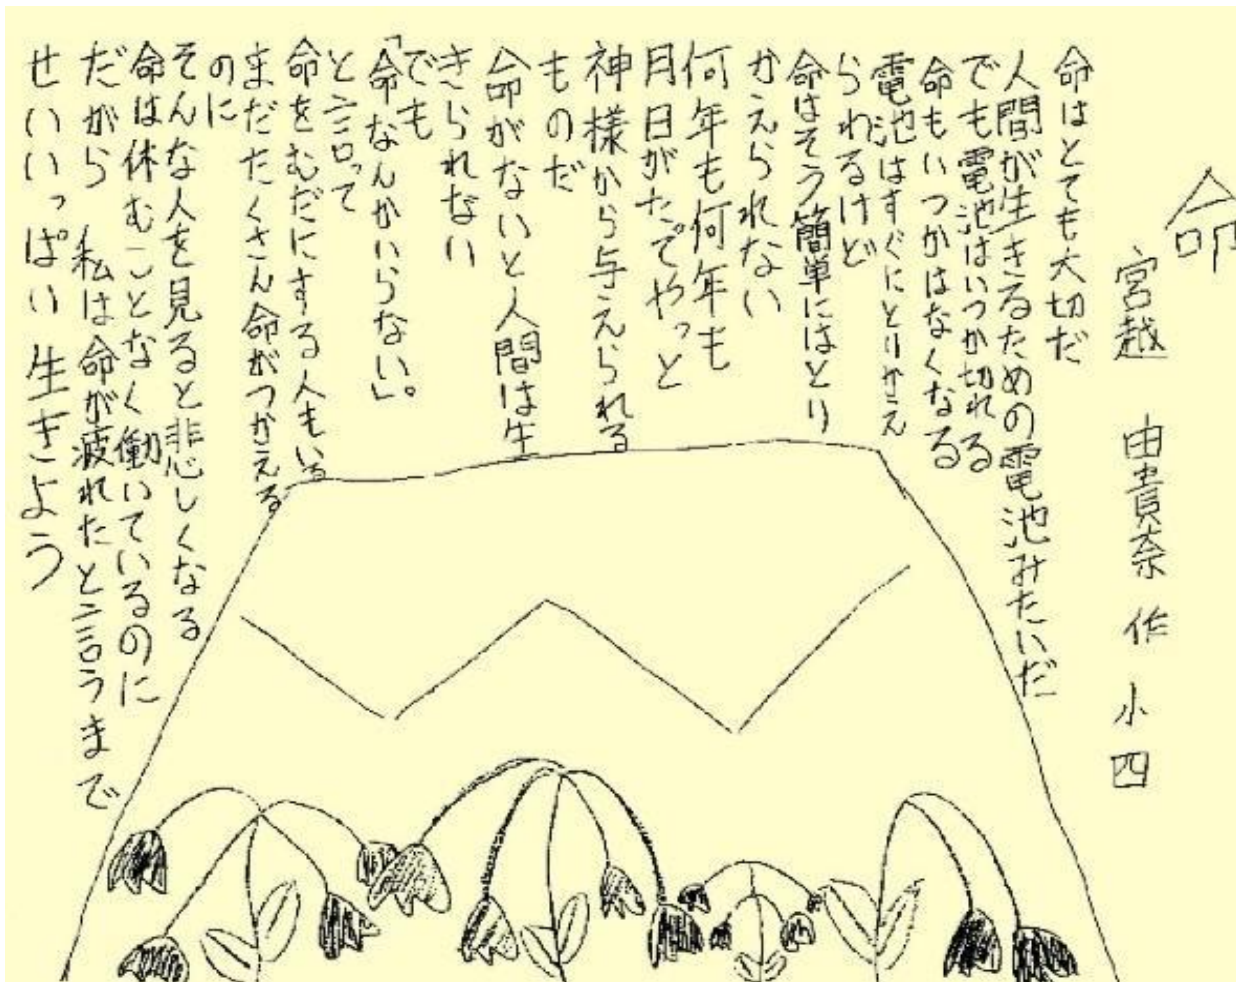 命
宮越 由貴奈 作 小四
命はとても大切だ
人間が生きるための電池みたいだ
でも電池はいつか切れる
命もいつかはなくなる
電池はすぐにとりかえ
られるけど
命はそう簡単にはとり
かえられない
何年も何年も
月日がたってやっと
神様から与えられる
ものだ
命がないと人間は生
きられない
でも
「命なんかいらない」。
と言って
命をむだにする人もいる
まだたくさん命がつかえる
のに
そんな人を見ると悲しくなる
命は休むことなく働いているのに
だから 私は命が疲れたと言うまで
せいいっぱい生きよう